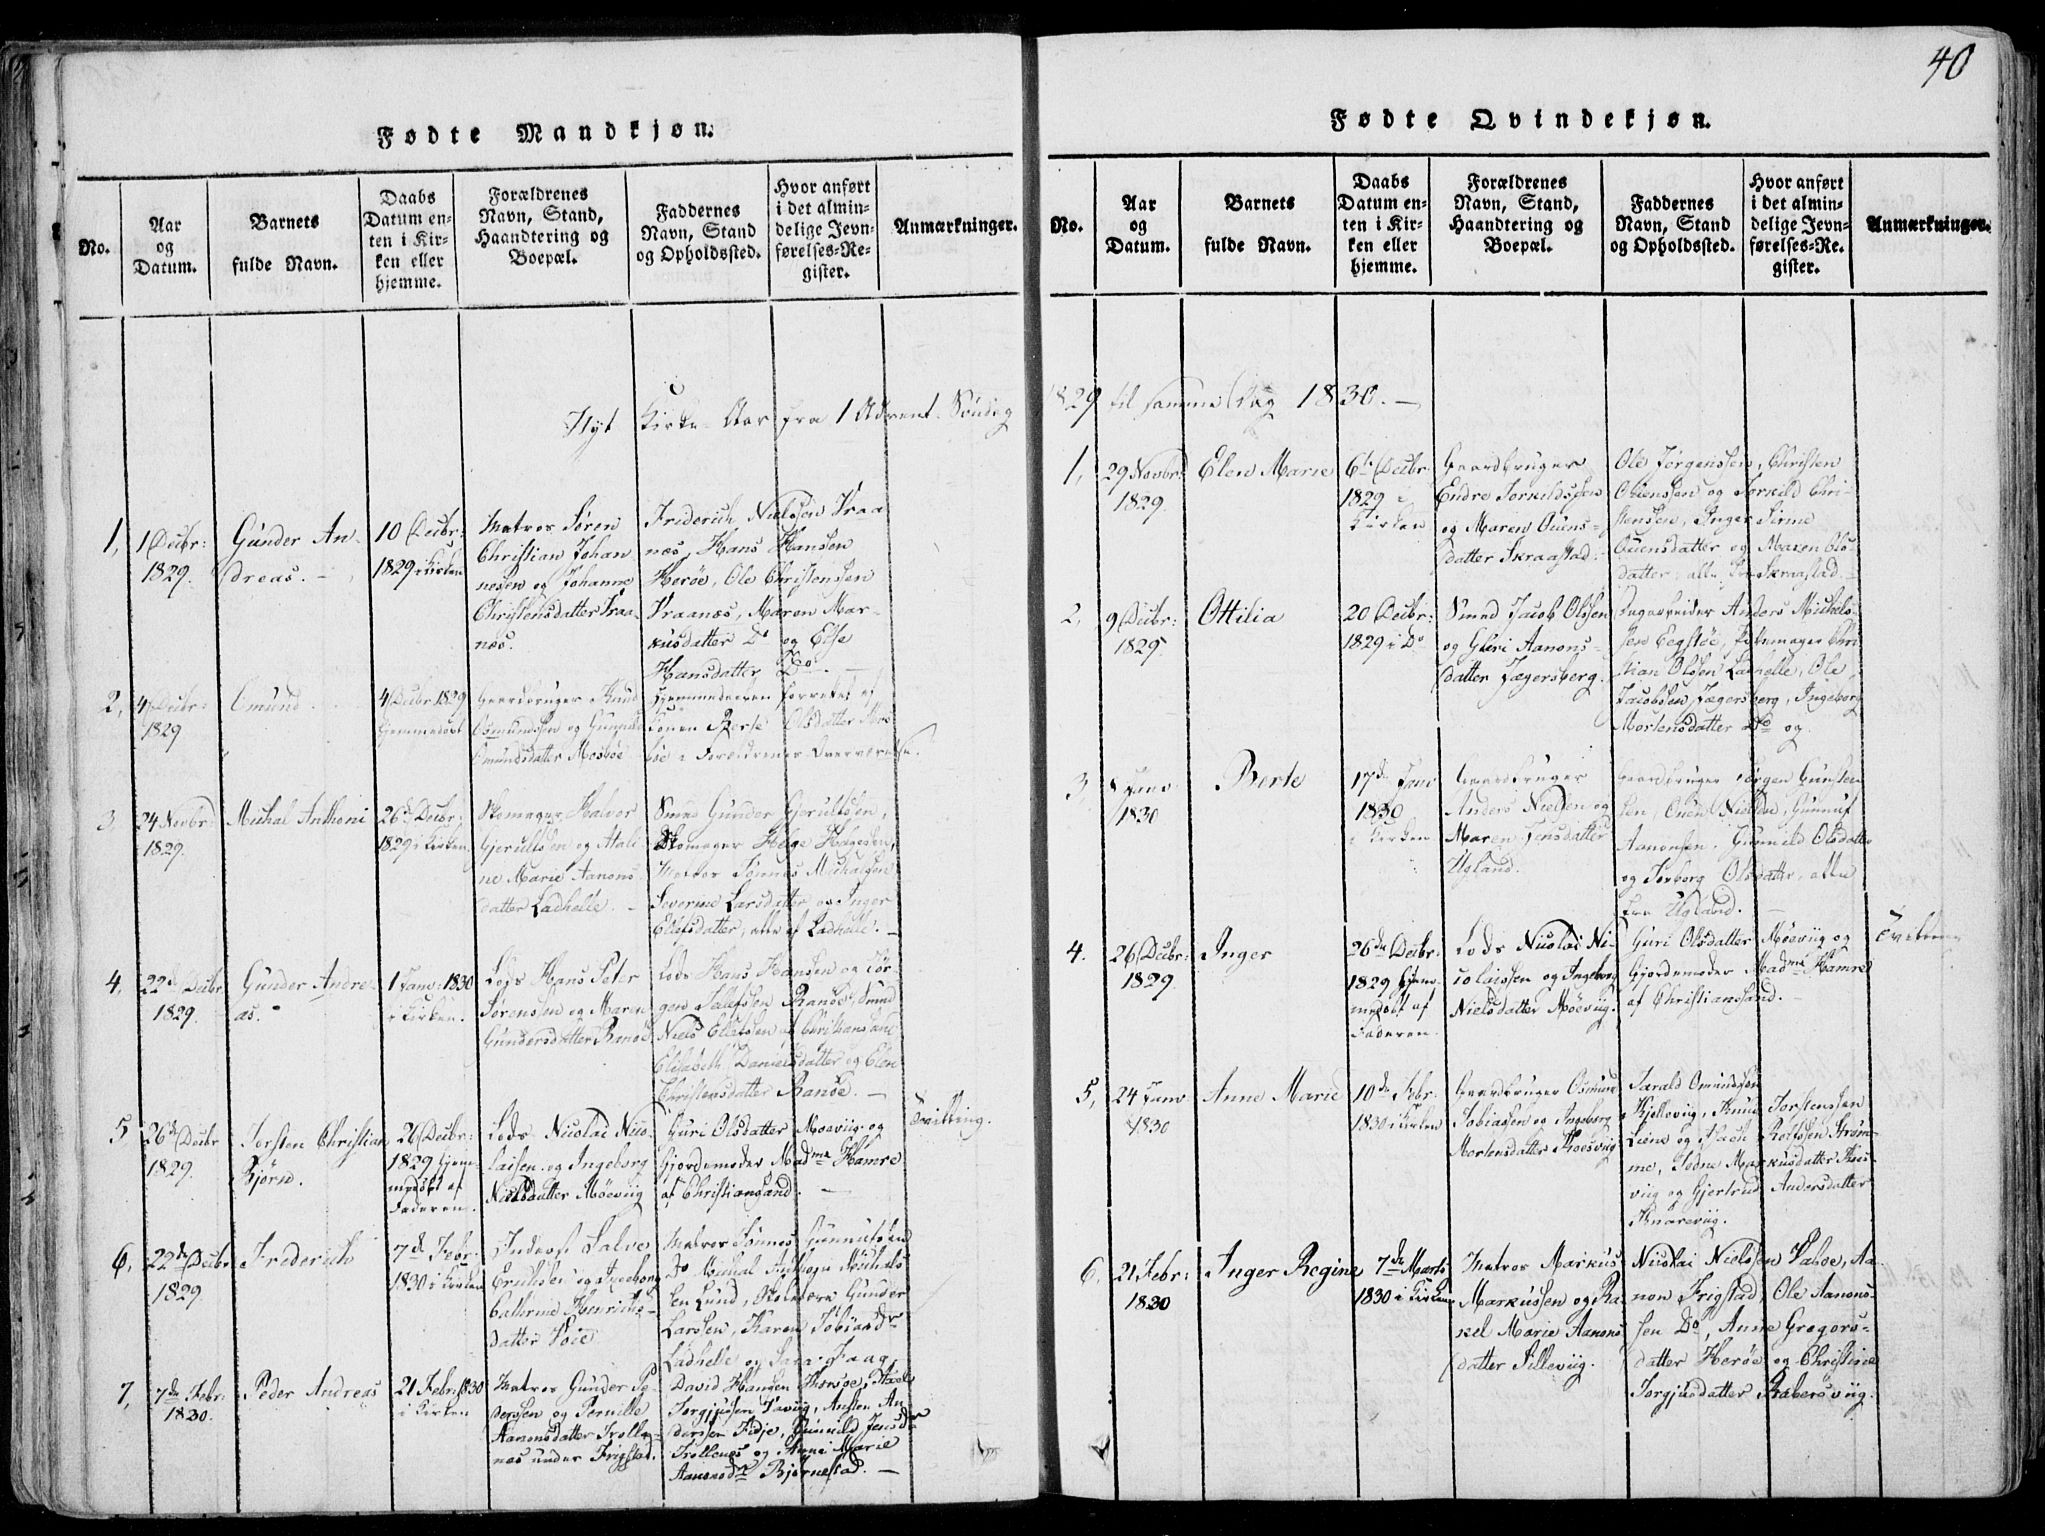 40
Fødte Mandkjøn.
No.
Aar
og
Datum.
Barnets
fulde Navn.
Daabs
Datum en-
ten i Kir-
ken eller
hjemme.
Forældrenes
Navn, Stand,
Haandtering og
Boepæl.
Faddernes
Navn, Stand
og Opholdssted.
Hvor anført
i det almin-
delige Jevn-
førelses-Re-
gister.
Anmærkninger.
Nyt Kirke-Aar fra 1 Advent Søndag
1,
1 Decbr:
1829.
Gunder An-
dreas. -
10 Decbr:
1829 i Kirken
Matros Søren
Christian Johan
nesen og Johanne
Christensdatter Kraa-
nes.
Friderich Nielssen Kraa
næs, Hans Hansen
Herøe, Ole Christensen
Kraanæs, Maren Mar-
kusdatter Do og Else
Hansdatter Do. -
2,
4 Decbr:
1829
Omund.
4 Decbr 1829
Hjemmedøbt
Gaardbruger Knud
Osmundssen og Gunnild
Omundsdatter Mosbøe
Hjemmedaaben forrettet af
Konen Berte Olsdatter Mos
bøe i Forældrenes Overværelse.
3,
24 Novbr:
1829.
Michal Anthoni
26de Decbr:
1829 i Kirken
Skomager Halvor
Gjerultsen og Atali-
ne Marie Aanons
datter Ladhelle. -
Smed Gunder Gjerultsen,
Skomager Helge Helgesen,
Matros Tønnes Michalsen
Severine Larsdatter og Inger
Ellefsdatter, alle af Ladhelle. -
4,
22de Decbr
1829.
Gunder Andre-
as. -
1 Janv: 1830
i Kirken.
Lods Hans Peter
Sørenssen og Maren
Gundersdatter Randøe
Lods Hans Hansen og Jør-
gen Tellefsen Randøe, Smed
Niels Ellefsen af Christiansand
Elisabeth Danielsdatter og Elen
Christensdatter Randøe. -
5
26de Decbr
1829.
Torsten Christian
Bjørn.
26 Decbr:
1829 hjem-
medøbt af
Faderen.
Lods Nicolai Nico-
laisen og Ingeborg
Nielsdatter Møeviig
Guri Olsdatter Møeviig og
Gjordemoder Madme Hamre
af Christiansand. -
Tvilling.
6,
22de Decbr
1829
Friderich
7de Febr:
1830 i Kirken
Inderst Salve
Erichsen og Ingeborg
Cathrine Henriks-
datter Foie
Matros Tønnes Gunnulsen
Do Michal Anthon Michals
sen Lund, Skolelærer Gunder
Larssen, Karen Tobiasdr
Ladhelle og Sara Faag
7,
7de Febr:
1830.
Peder Andreas
21 Febr: 1830
i Kirken
Matros Gunder Pe-
dersen og Pernille
Aanonsdatter Trolle-
nes under Frigstad.
David Hansen
Torgjussen
dersen Fidje, Gunnild Jensdr
Trollenes og Anne Marie
Aanonsdr Bjørnestad. -
Fødte Qvindekjøn.
No.
Aar
og
Datum.
Barnets
fulde Navn.
Daabs
Datum en-
ten i Kir-
ken eller
hjemme.
Forældrenes
Navn, Stand,
Haandtering og
Boepæl.
Faddernes
Navn, Stand
og Opholdssted.
Hvor anført
i det almin-
delige Jevn-
førelses-Re-
gister.
Anmærkninger.
1829 til samme Dag 1830. -
1,
29 Novbr:
1829.
Elen Marie
6te Decbr:
1829 i
Kirken
Gaardbruger
Endre Torkildssen
og Maren Ouens-
datter Skraastad.
Ole Jørgenssen, Christen
Ouenssen og Torkild Chri-
stenssen, Inger Sirine
Ouensdatter og Maren Ols-
datter, alle fra Skraastad. -
2,
9 Decbr:
1829.
Ottilia
20 Decbr:
1829 i Do
Smed Jacob Olssen
og Guri Aanons-
datter Jægersberg.
Anders Michels-
sen Eegstøe, Chri-
stian Olssen Ladhelle, Ole
Jacobssen Jægersberg, Ingeborg
Mortensdatter Do og
3
8 Janv
1830
Berte
17de Janv
1830
i Kirken
Gaardbruger
Anders Nielsen og
Maren Jensdatter
Ugland.
Gaardbruger Jørgen Gunsten
sen, Ouen Nielsen, Gunnuf
Aanonsen, Gunnild Olsdatter
og Torborg Olsdatter, alle
fra Ugland. -
4.
26 Decbr:
1829.
Inger
26de Decbr:
1829 hjem-
medøbt af
Faderen.
Lods Nicolai Ni-
colaissen og Ingeborg
Nielsdatter Møeviig.
Guri Olsdatter Møeviig og
Gjordemoder Madme Hamre
af Christiansand. -
5,
24 Janv
1830
Anne Marie
10de Febr:
1830 i Kirken
Gaardbruger Osmund
Tobiassen og Ingeborg
Mortensdatter Kosviig
Tarald Omundssen
Kjelleviig, Knud Torstenssen
Liene og Aslach Rolfssen Strøm-
me, Marcusdatter Kos-
viig og Gjertrud Andersdatter
Knareviig.
6,
21 Febr:
1830
Inger Regine
7de Marts
1830 i Kirken
Matros Markus
Markussen og Ra-
kel Marie Aanons
datter Silleviig.
Nicolai Nielssen Fahøe, Aa-
non Frigstad, Ole Aanons-
sen Do, Anne Gregors-
datter Herøe og Christine
Torgjusdatter Rabersviig.